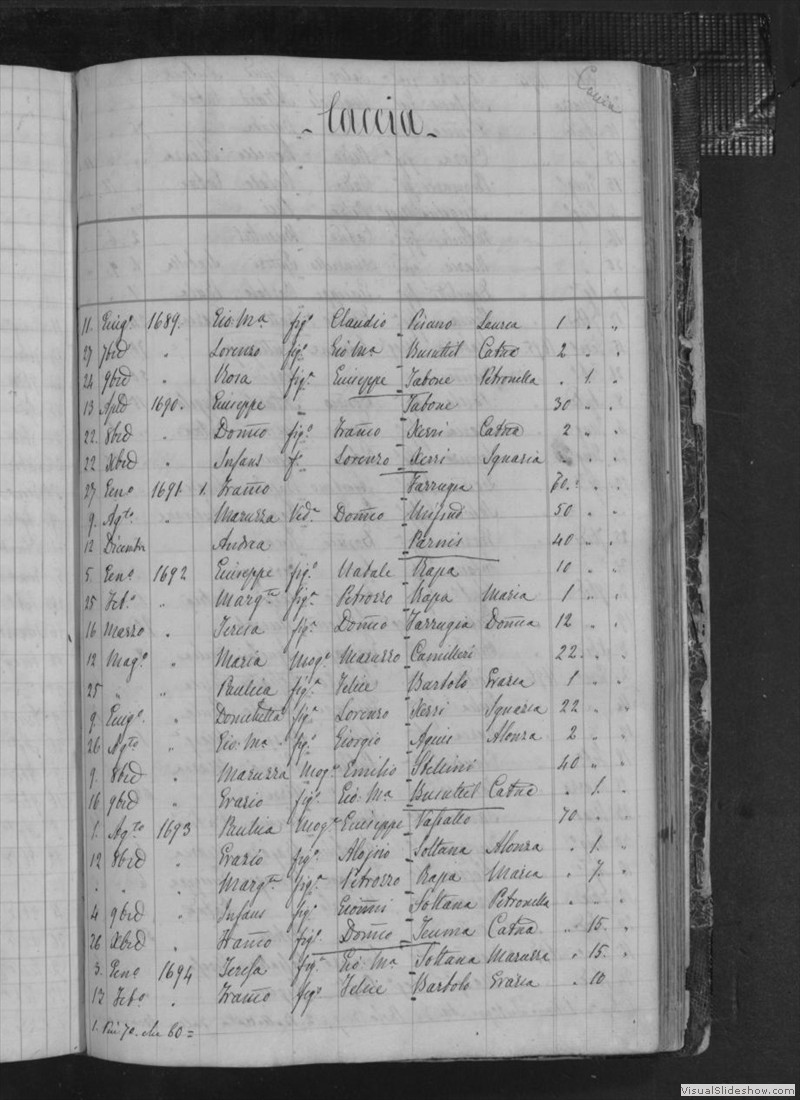 Caccia
- Caccia -
11 Giugo 1689. Gio: Ma figo Claudio Pisano Laurea 1 . "
27 7bre " Lorenzo figo Gio Ma Busuttil Catna 2 " "
24 9bre " Rosa figa Giuseppe Tabone Petronilla . 1. "
13 Aple 1690. Giuseppe " Tabone 30 " "
22. 8bre " Domco figo Franco Xerri Catna 2 " .
22 Xbre " Infans f. Lorenzo Xerri Ignazia
27 Geno 1691 1. Franco Farrugia 60. .
9. Agto " Maruzza Veda Domco Mifsud 50 " .
12 Dicembre Andrea Parnis 40 " .
5. Geno 1692 Giuseppe figo Natale Rapa 10 " .
25 Febo " Margta figa Petrozzo Rapa Maria 1 " .
16 Marzo . Teresa figa Domco Farrugia Domca 12 " .
12 Mago " Maria Moge Maruzzo Camilleri 22. . .
25 " " Paulica figa Felice Bartolo Grazia 1 " .
9. Giugo. " Domchetta figa Lorenzo Xerri Ignazia 22 " .
26 Agto " Gio: Ma figo Giorgio Agius Alonza 2 " .
9. 8bre " Maruzza Moge Emilio Stellini 40 " "
16 9bre " Grazio figo Gio: Ma Busuttil Catna " 1. "
1. Agto 1693 Paulica Moge Giuseppe Vassallo 70 " .
12 8bre " Grazio figo Aloisio Soltana Alonza " 1. "
" . " Margta figa Petrozzo Rapa Maria " 7. .
4 9bre " Infans figo Gioanni Soltana Petronilla " . "
26 Xbre " Franco figo Domco Teuma Catna " 15. .
3. Geno 1694 Teresa figa Gio: Ma Soltana Maruzza " 15. .
17 Febo " Franco figo Felice Bartolo Grazia " 10
1. Più 70. che 60 =
VisualSlideshow.com